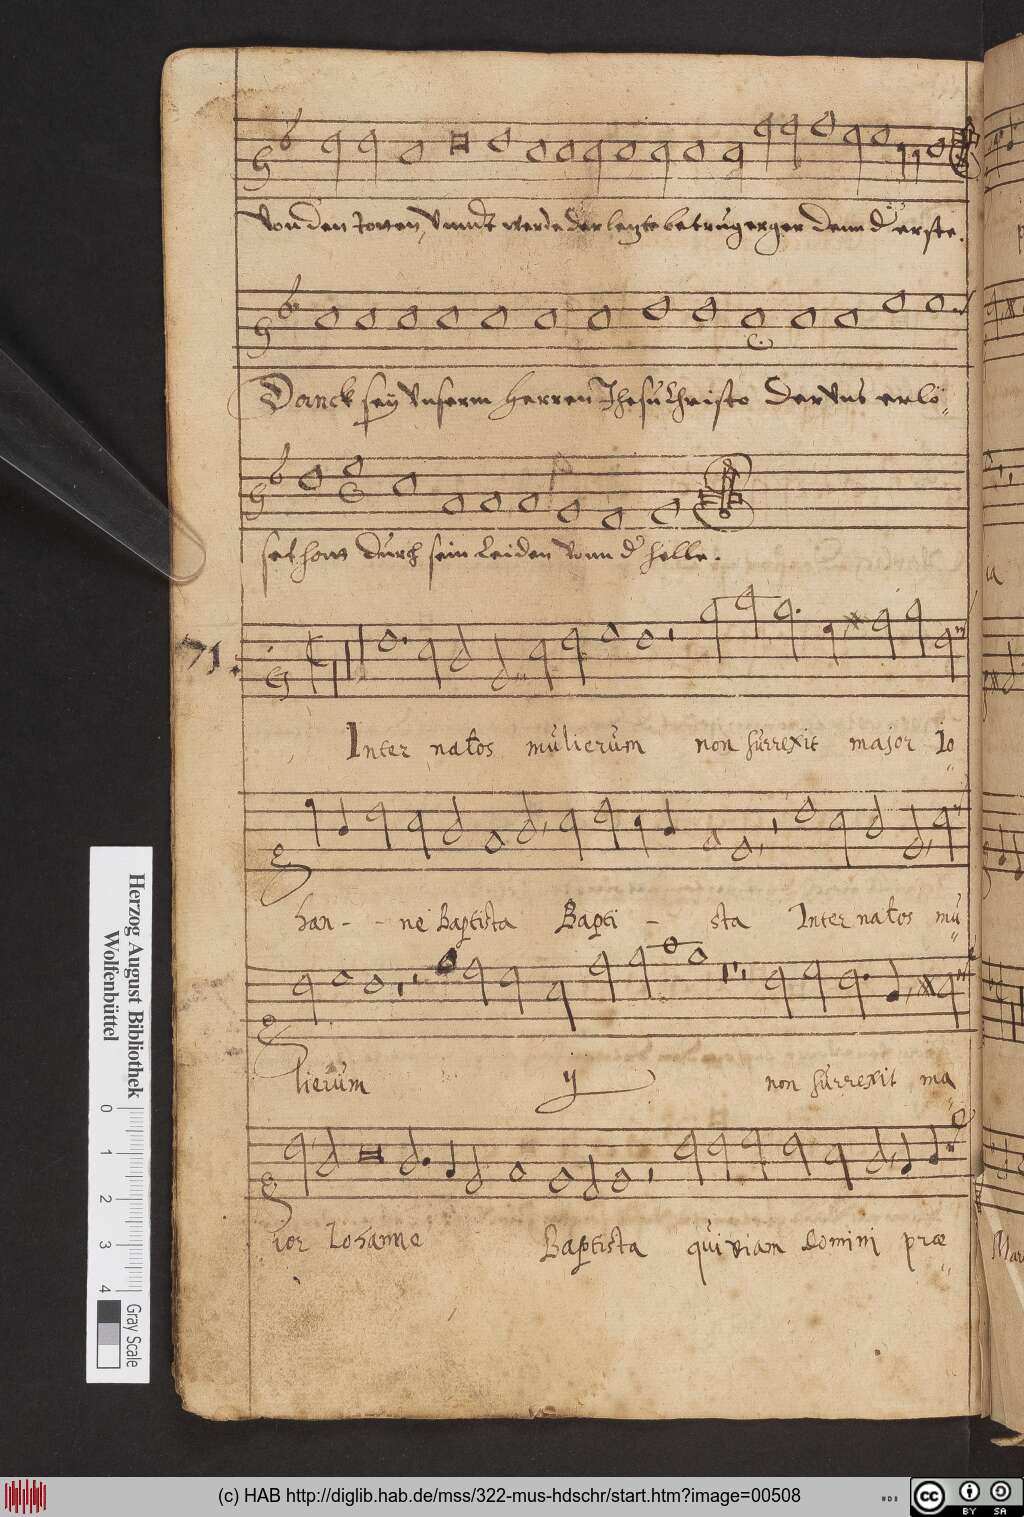 Von den Totten, Vnndt werde der letzte betrug erger denn d' erste.
Danck sey Vnserm Herren Jhesu Christo Der Vns erlö„
set hatt durch sein Leiden Vonn d' Helle.
71.
Inter natos mulierum non surrexit major Io„
han - - ne Baptista Bapti - sta Inter natos mu„
lierum ij non surrexit ma„
ior Iohanne Baptista qui viam Domini præ„
Herzog August Bibliothek
Wolfenbüttel
0 1 2 3 4
Gray Scale
(c) HAB http://diglib.hab.de/mss/322-mus-hdschr/start.htm?image=00508
HAB
cc BY SA